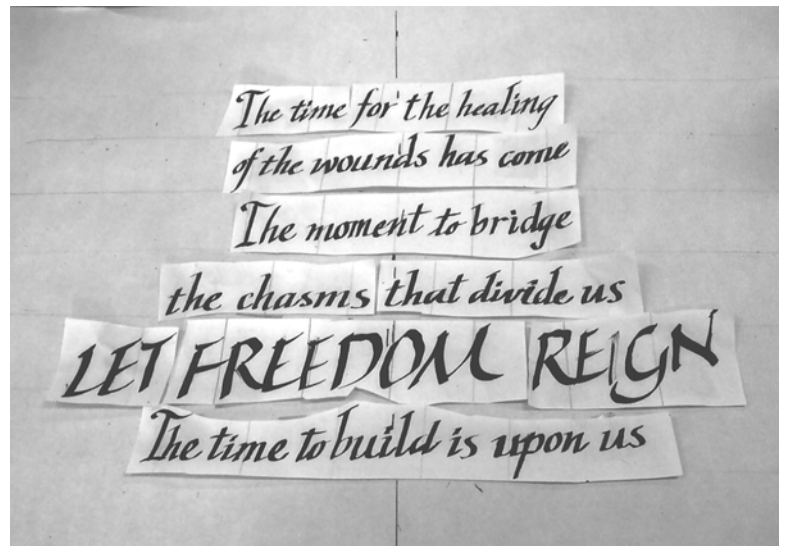 The time for the healing
of the wounds has come
The moment to bridge
the chasms that divide us
LET FREEDOM REIGN
The time to build is upon us